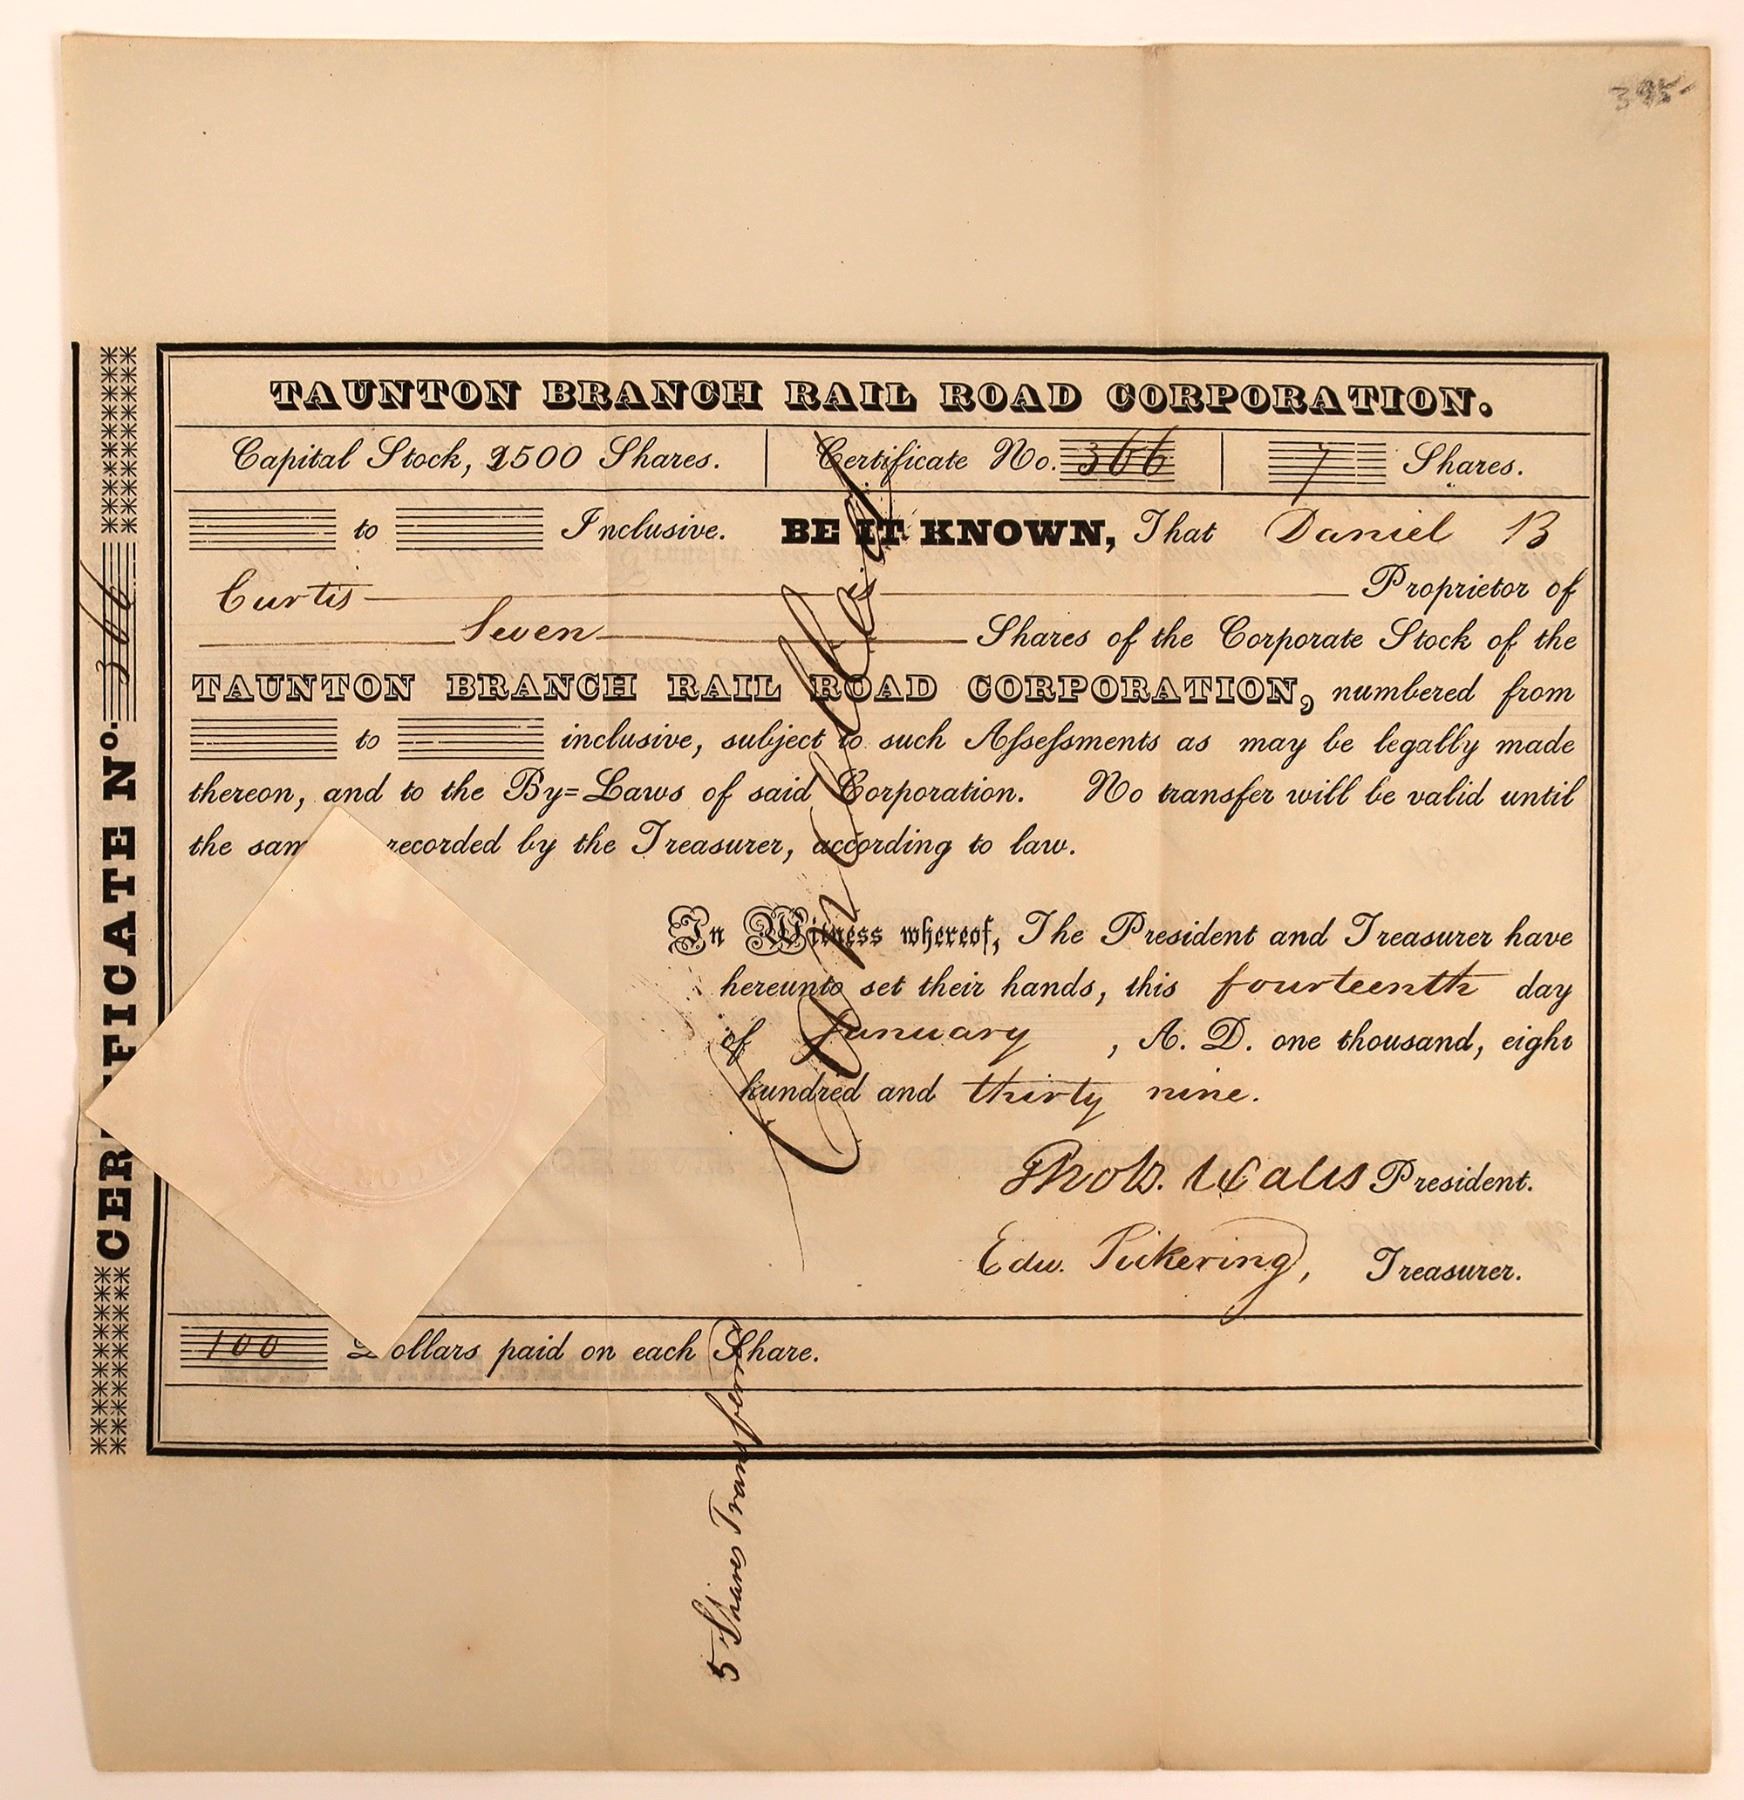 395-
TAUNTON BRANCH RAIL ROAD CORPORATION.
Capital Stock, 2500 Shares. Certificate No. 366 7 Shares.
to Inclusive. BE IT KNOWN, That Daniel B
Curtis Proprietor of
Seven Shares of the Corporate Stock of the
TAUNTON BRANCH RAIL ROAD CORPORATION, numbered from
to inclusive, subject to such Assessments as may be legally made
thereon, and to the By=Laws of said Corporation. No transfer will be valid until
the sam recorded by the Treasurer, according to law.
In Witness whereof, The President and Treasurer have
hereunto set their hands, this fourteenth day
of January, A. D. one thousand, eight
hundred and thirty nine.
Thos. B. Wales President.
Edw. Pickering, Treasurer.
100 Dollars paid on each Share.
CERTIFICATE No. 366
Cancelled
5 Shares Transferred